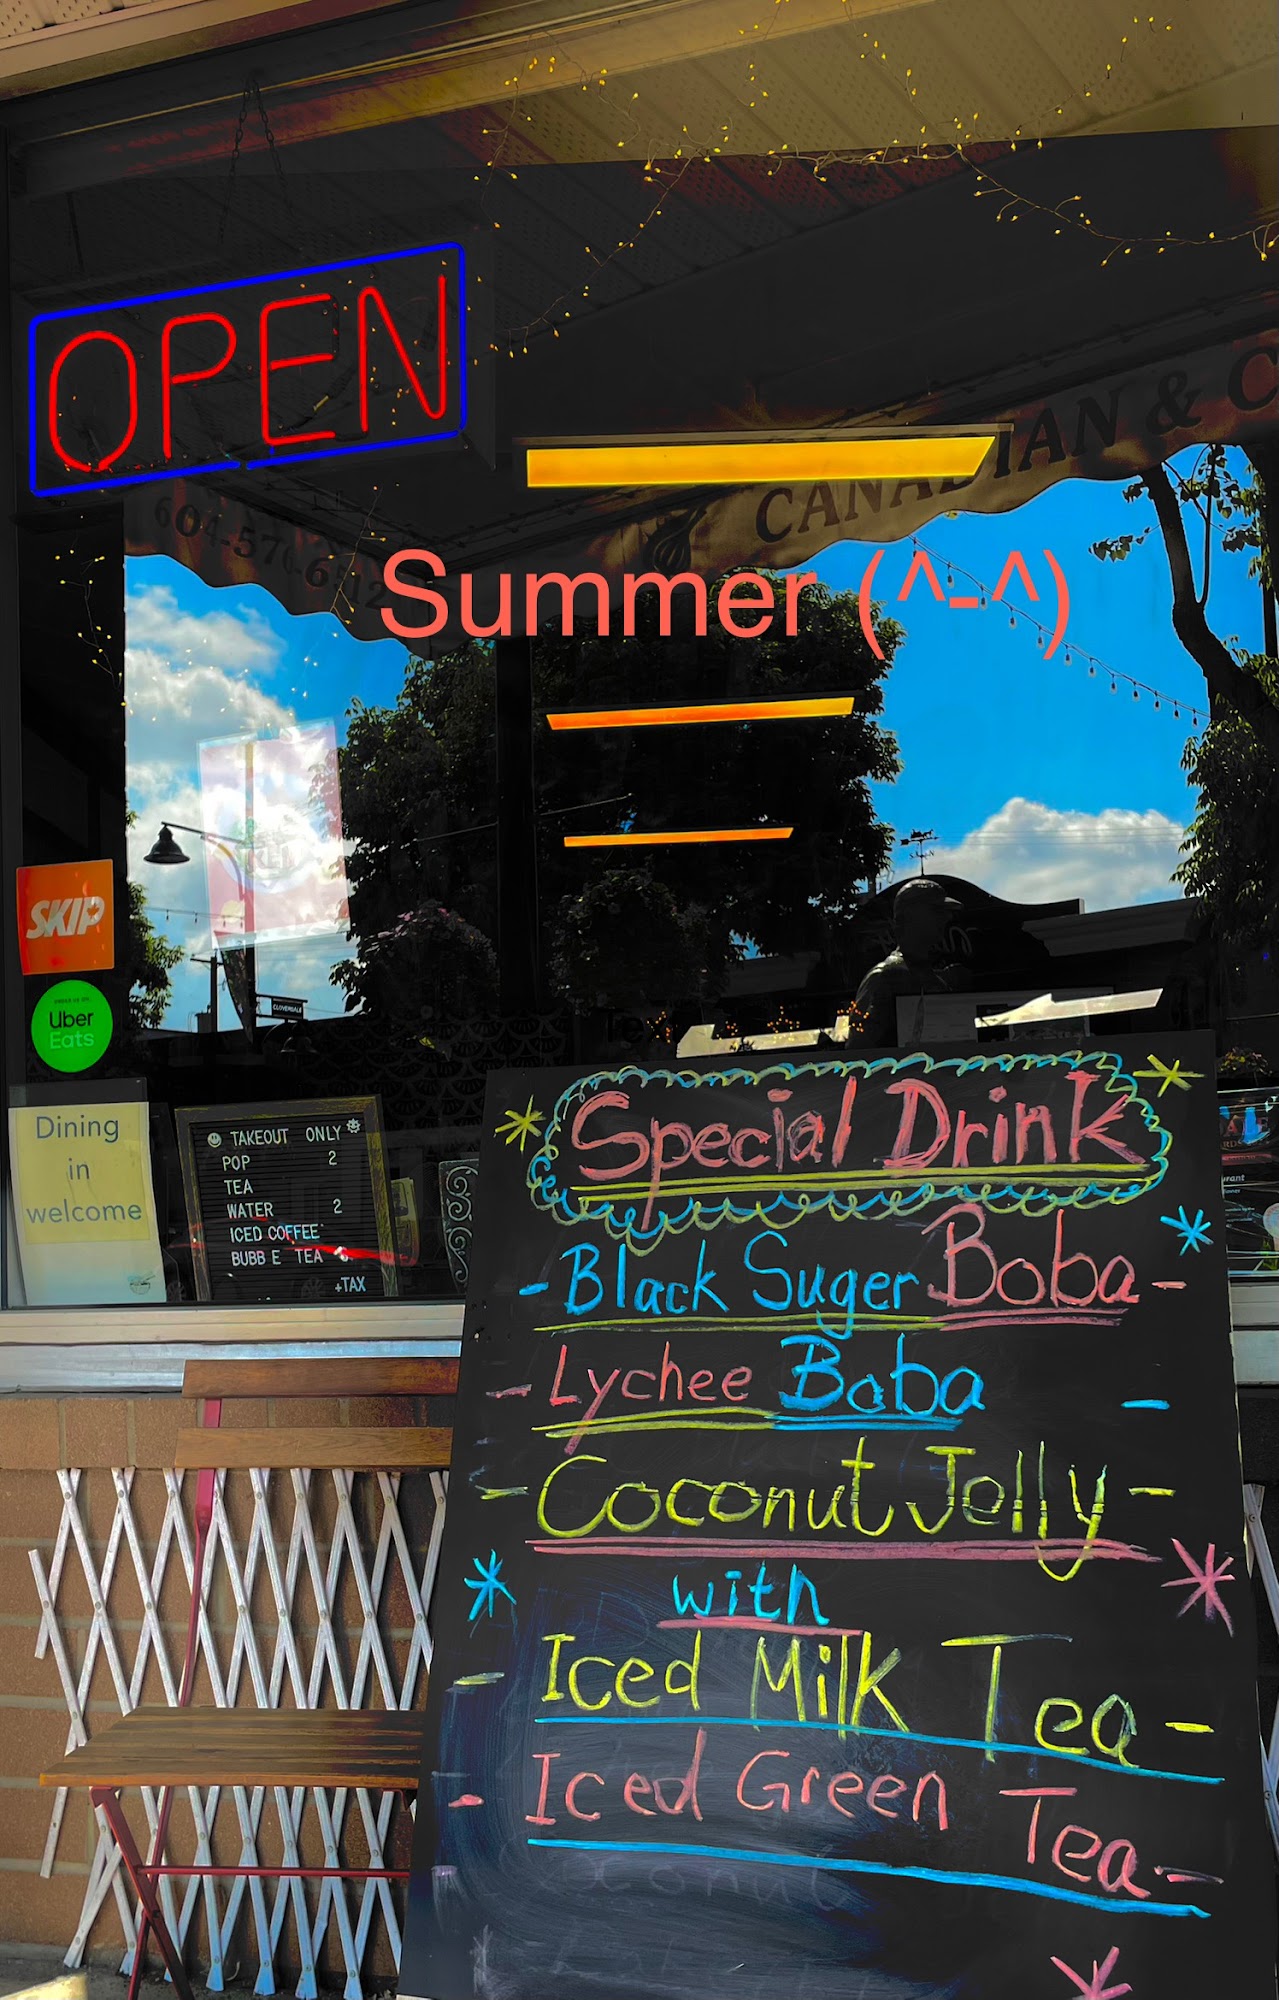 OPEN
CANADIAN & C
604-576-6512
Summer (^-^)
SKIP
Uber
Eats
CLOVERDALE
Dining
in
welcome
TAKEOUT ONLY
POP 2
TEA
WATER 2
ICED COFFEE
BUBB E TEA
+TAX
Special Drink
- Black Suger Boba -
- Lychee Boba -
- Coconut Jelly -
with
- Iced Milk Tea -
- Iced Green Tea -